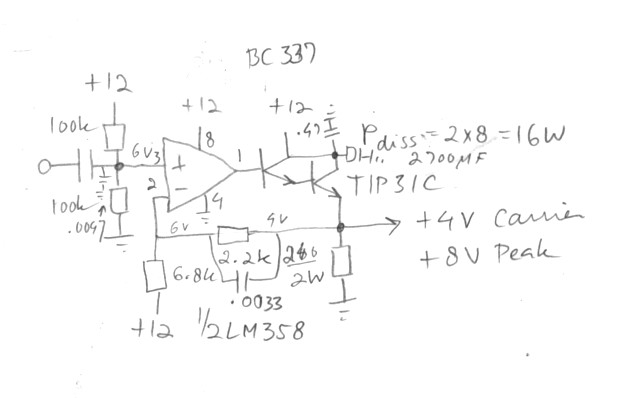 BC 337
+12
+12
+12
.47
100k
6V3
+
8
1
Pdiss = 2x8 = 16W
2700MF
2
-
4
TIP31C
100k
.0047
6V
4V
+4V Carrier
+8V Peak
2.2k
2W
6.8k
.0033
+12
1/2 LM358